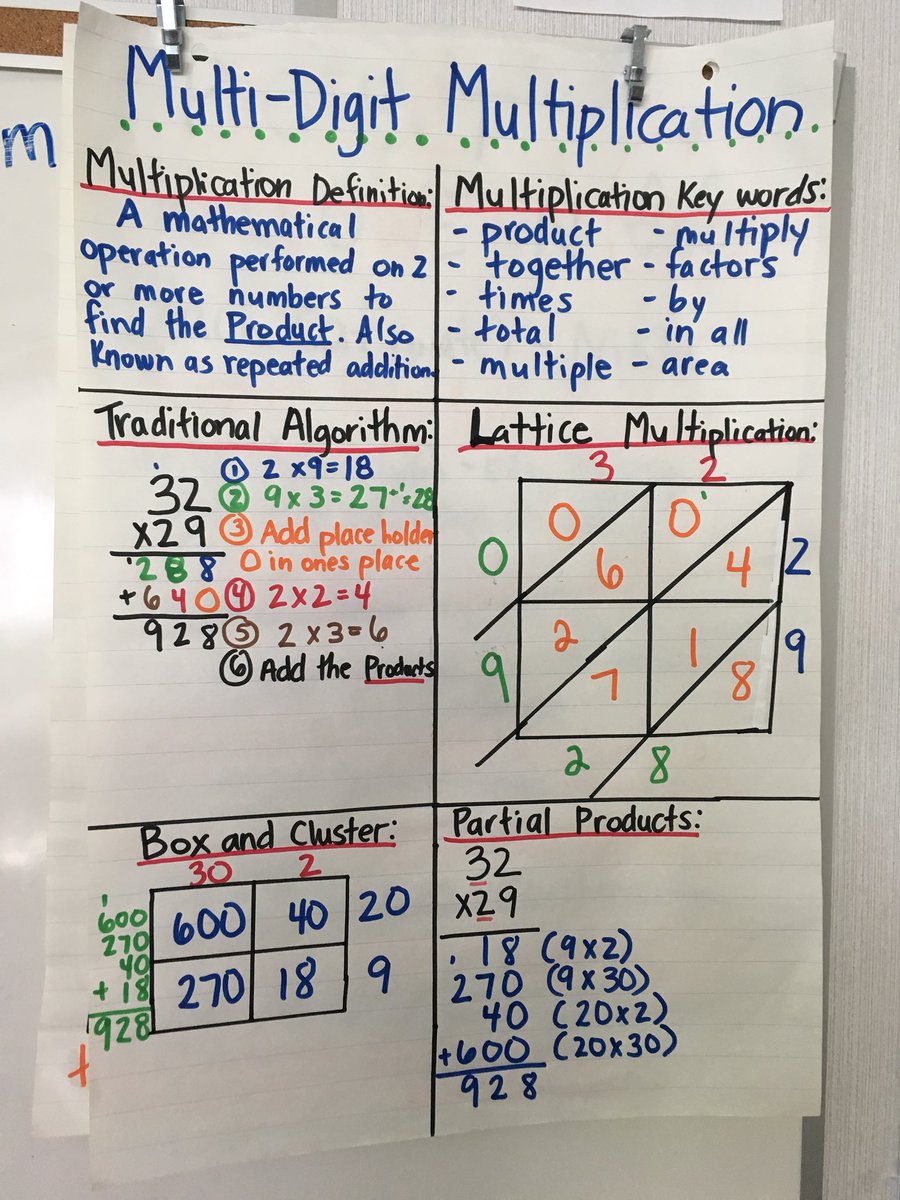 Multi-Digit Multiplication
m
Multiplication Definition:
A mathematical
operation performed on 2
or more numbers to
find the Product. Also
Known as repeated addition.
Multiplication Key words:
- product - multiply
- together - factors
- times - by
- total - in all
- multiple - area
Traditional Algorithm:
32
x29
1288
+640
928
① 2 x9=18
② 9 x 3 = 27+1=28
③ Add place holder
0 in ones place
④ 2x2=4
⑤ 2 x3=6
⑥ Add the Products
Lattice Multiplication:
3 2
0 0 0 1
6 4 2
2 1
9 7 8 9
2 8
Box and Cluster:
30 2
600 40 20
270 18 9
1
600
270
40
+ 18
928
+
Partial Products:
32
x29
18 (9x2)
270 (9x30)
40 (20x2)
+600 (20x30)
928